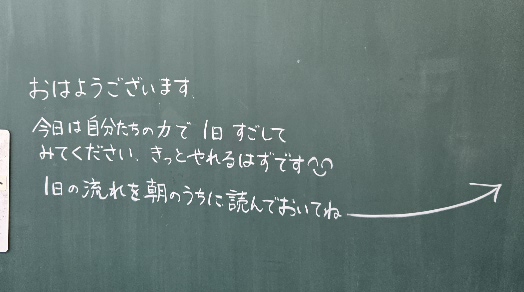 おはようございます.
今日は自分たちの力で 1日 すごして
みてください. きっとやれるはずです
1日の流れを朝のうちに読んでおいてね